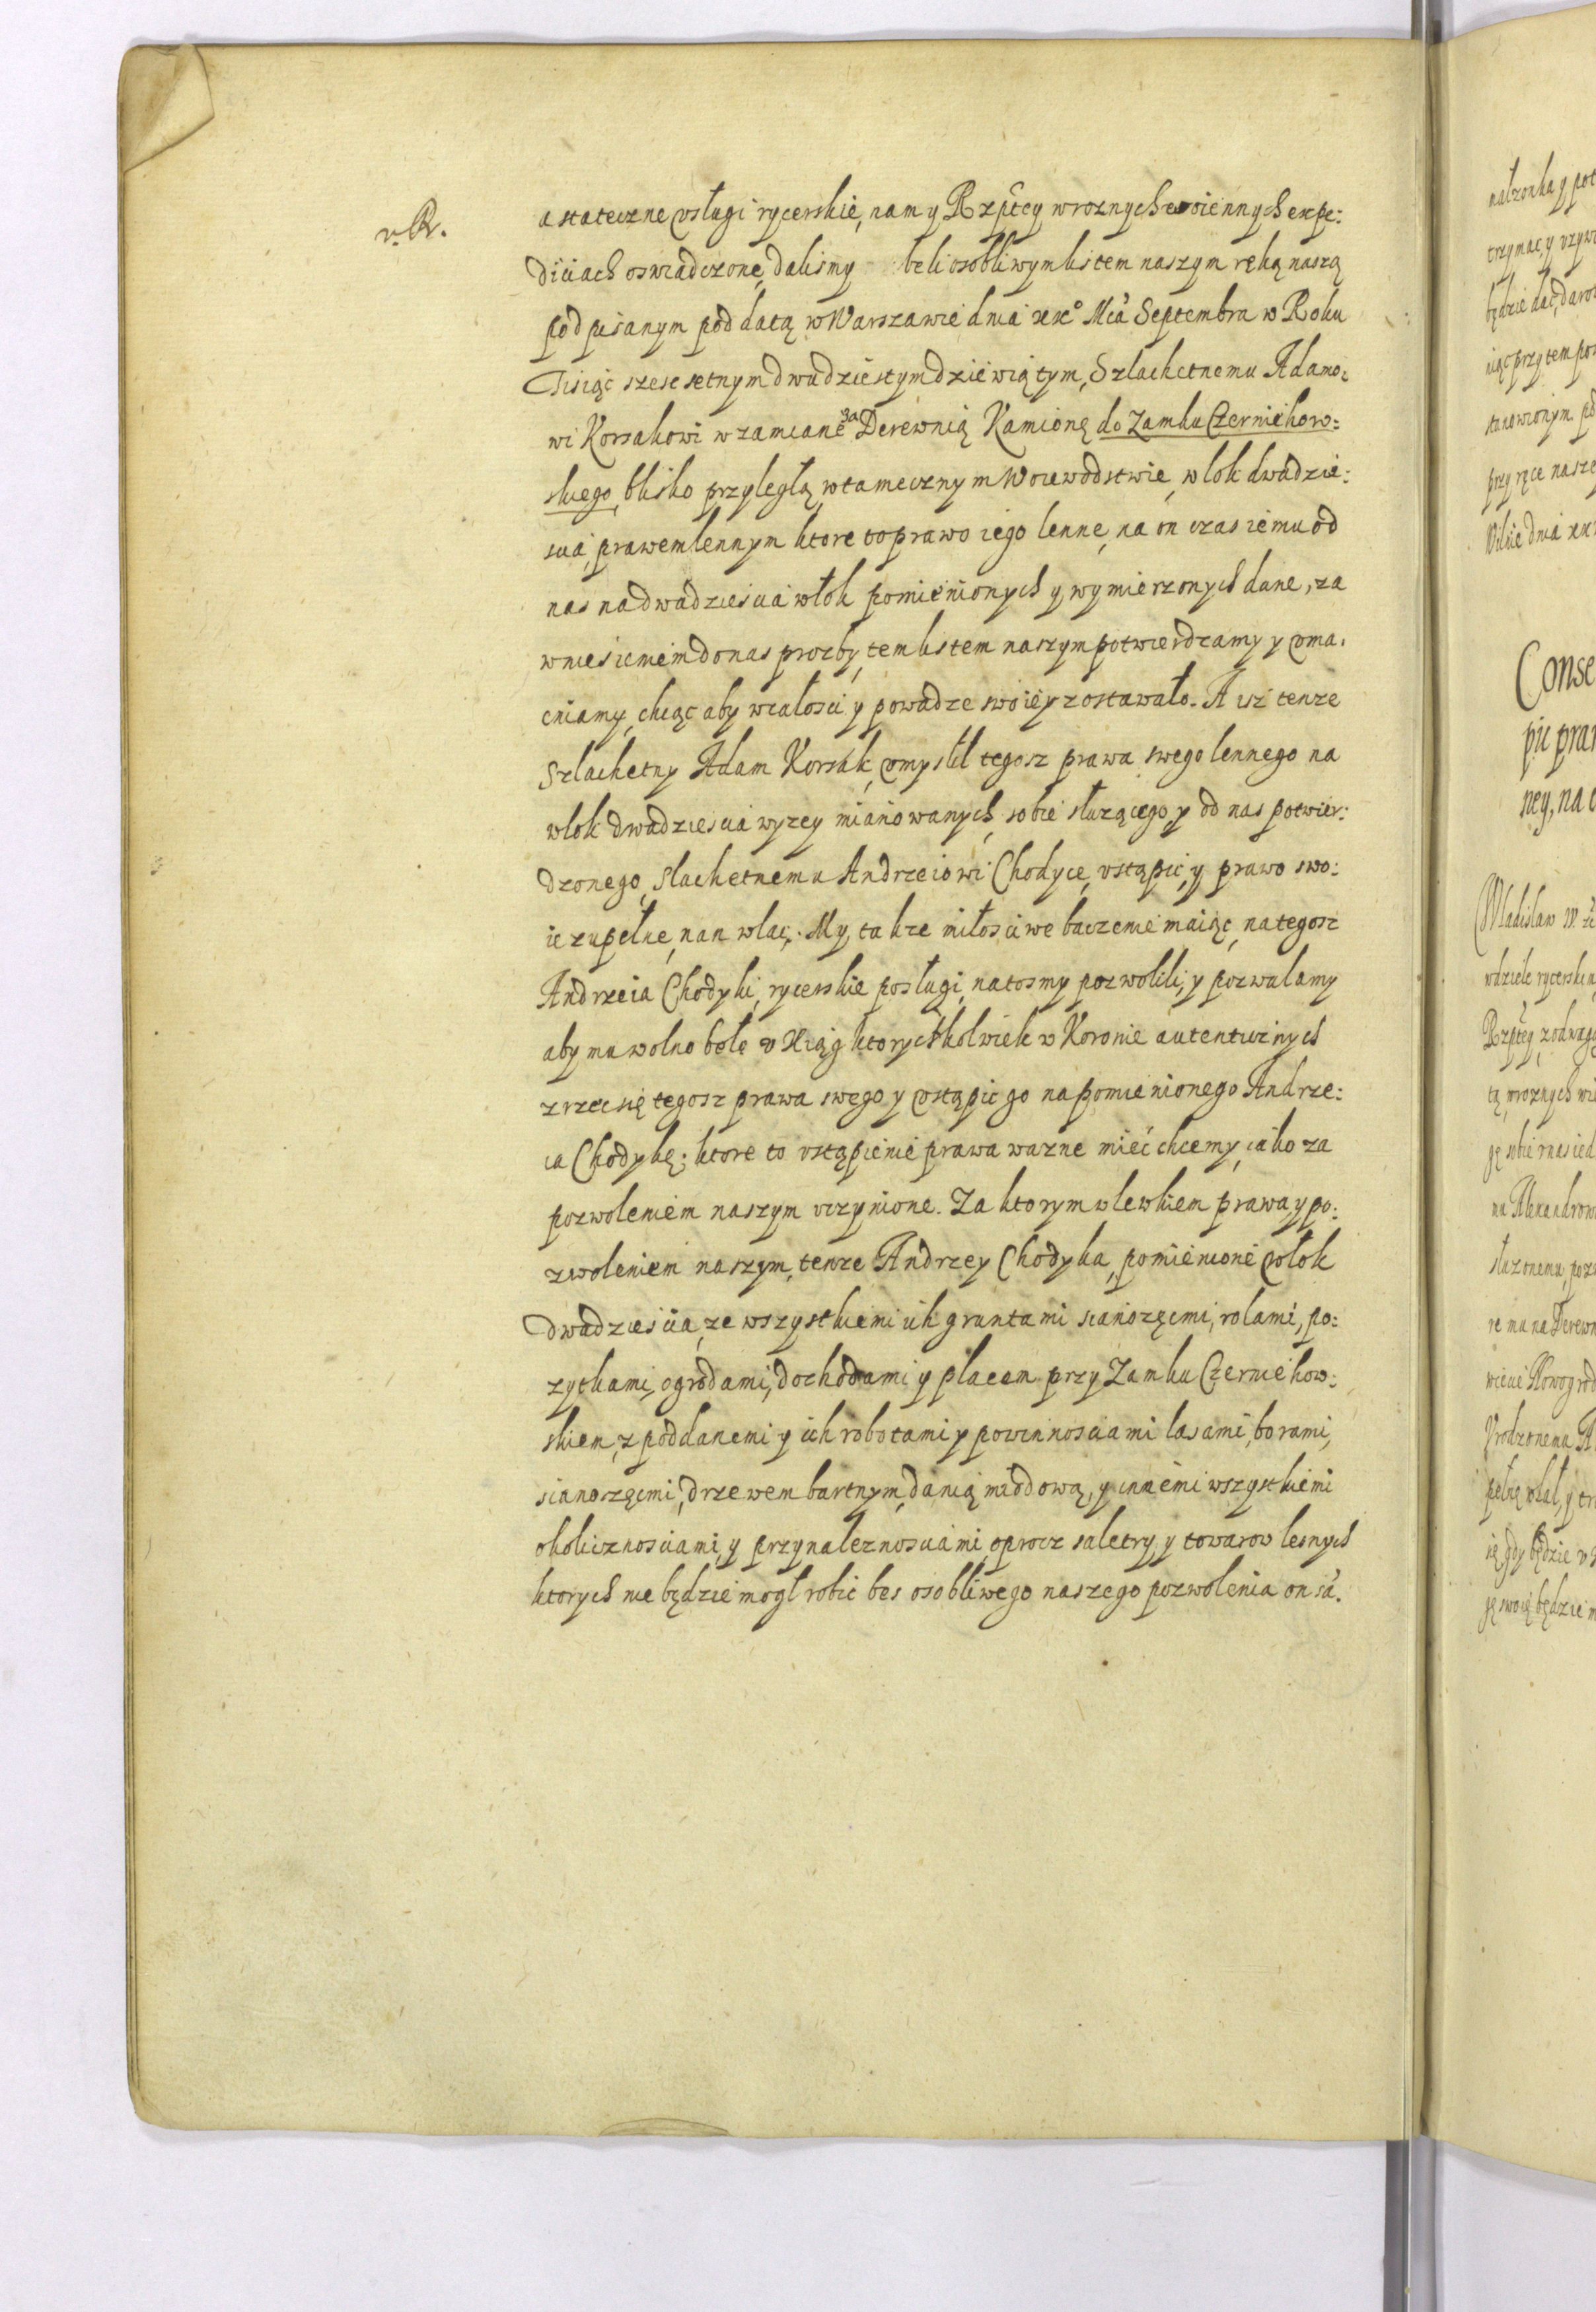 v. R.
a stateczne vsługi rycerskie, nam y Rzpltey wroznych woiennych expe:
diciach oswiadczone, dalismy beli osobliwym listem naszym ręką naszą
podpisanym pod datą w Warszawie dnia xx° Mca Septembra w Roku
Tisiąc szescsetnym dwudziestym dziewiątym, Szlachetnemu Adamo:
wi Korsakowi w zamiane za Derewnią Kamioną do Zamku Czerniehow:
skiego, blisko przyległą, w tamecznym Woiewodstwie, wlok dwadzie:
scia, prawem lennym ktore to prawo iego lenne, na on czas iemu od
nas na dwadziescia włok pomienionych y wymierzonych dane, za
wniesieniem do nas prozby, tem listem naszym potwierdzamy y vma:
cniamy, chcąc aby wcałosci y powadze swoiey zostawało. A isz tenze
Szlachetny Adam Korsak, vmyslił tegosz prawa swego lennego na
wlok dwadziescia wyzey mianowanych, sobie słuzącego, y od nas potwier:
dzonego, slachetnemu Andrzeiowi Chodyce, vstąpic, y prawo swo:
ie zupełne, nan wlac. My, takze miłosciwe baczenie maiąc, na tegosz
Andrzeia Chodyki, rycerskie posługi, na tosmy pozwolili, y pozwalamy
aby mu wolno beło v Xiąg ktorychkolwiek w Koronie autenticznych
zrzec się tegosz prawa swego y vstąpic go na pomienionego Andrze:
ia Chodykę; ktore to vstąpienie prawa wazne mieć chcemy, iako za
pozwoleniem naszym vczynione. Za ktorym wlewkiem prawa, y po:
zwoleniem naszym, tenze Andrzey Chodyka, pomienione włok
dwadziescia, ze wszystkiemi ich gruntami, sianozęcmi, rolami, po:
zytkami, ogrodami, dochodami y placem przy Zamku Czerniehow:
skiem, z poddanemi y ich robotami y powinnosciami lasami, borami,
sianozęcmi, drzewem bartnym, danią miodową, y innemi wszystkiemi
okolicznosciami, y przynaleznosciami, oprocz saletry, y towarow lesnych
ktorych nie będzie mogł robic bes osobliwego naszego pozwolenia on sa:
Conse
ney, na
Wladislaw